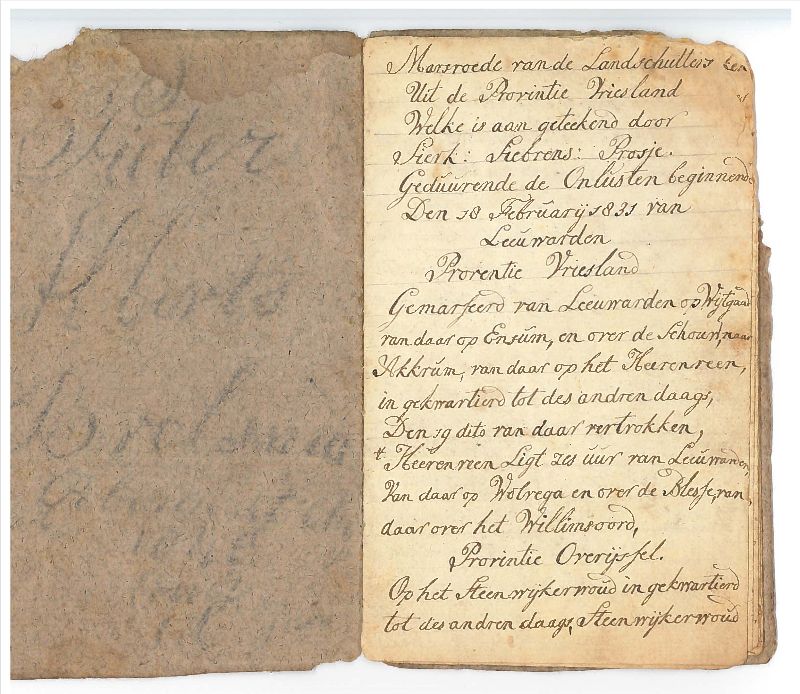 Pieter
Marsroede van de Landschutters een
Uit de Provintie Vriesland
Welke is aan geteekend door
Sierk: Siebrens: Prosje.
Geduurende de Onlusten beginnende
Den 18 Februarij 1831 van
Leeuwarden
Proventie Vriesland
Gemarseerd van Leeuwarden op Wijtgaard
van daar op Ensum, en over de Schouw, naar
Akkrum, van daar op het Heerenveen,
in gekwartierd tot des andren daags,
Den 19 dito van daar vertrokken,
Heerenveen Ligt zes uur van Leeuwarden,
Van daar op Wolvega en over de Blesse, van
daar over het Willimsoord,
Provintie Overijssel.
Op het Steenwijkerwoud in gekwartierd
tot des andren daags, Steenwijkerwoud